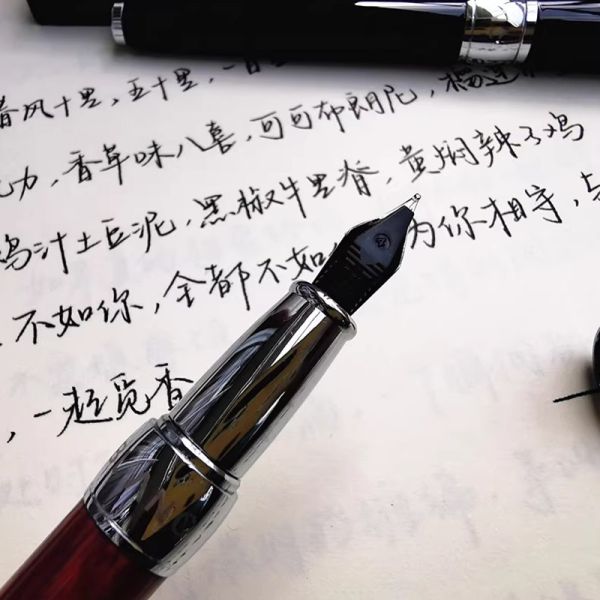 春风十里，五十里，一百
力，香草味八喜，可可布朗尼，榴莲
鸡汁土豆泥，黑椒牛里脊，黄焖辣子鸡
，不如你，全都不如 为你相守，
，一起觅香